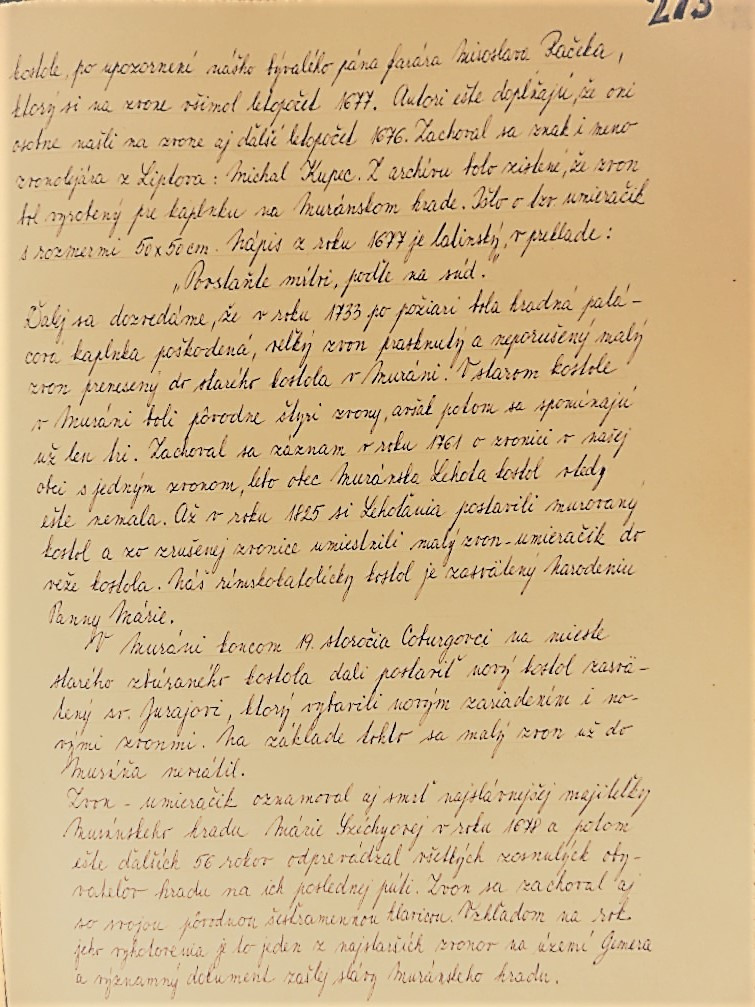 273
kostole, po upozornení nášho bývalého pána farára Miroslava Račeka,
ktorý si na zvone všimol letopočet 1677. Autori ešte doplňajú, že oni
osobne našli na zvone aj ďalší letopočet 1676. Zachoval sa znak i meno
zvonolejára z Liptova: Michal Kupec. Z archívu bolo zistené, že zvon
bol vyrobený pre kaplnku na Muránskom hrade. Išlo o tzv umieračik
s rozmermi 50x50cm. Nápis z roku 1677 je latinský, v preklade:
„Povstaňte mŕtvi, poďte na súd."
Ďalej sa dozvedáme, že v roku 1733 po požiari bola hradná palá-
cova kaplnka poškodená, veľký zvon prasknutý a neporušený malý
zvon prenesený do starého kostola v Muráni. V starom kostole
v Muráni boli pôvodne štyri zvony, avšak potom sa spomínajú
už len tri. Zachoval sa záznam v roku 1761 o zvonici v našej
obci s jedným zvonom, lebo obec Muránska Lehota kostol vtedy
ešte nemala. Až v roku 1825 si Lehoťania postavili murovaný
kostol a zo zrušenej zvonice umiestnili malý zvon-umieračik do
veže kostola. Náš rímskokatolícky kostol je zasvätený Narodeniu
Panny Márie.
V Muráni koncom 19. storočia Coburgovci na mieste
starého zbúraného kostola dali postaviť nový kostol zasvä-
tený sv. Jurajovi, ktorý vybavili novým zariadením i no-
vými zvonmi. Na základe tohto sa malý zvon už do
Muráňa nevrátil.
Zvon - umieračik oznamoval aj smrť najslávnejšej majiteľky
Muránskeho hradu Márie Széchyovej v roku 1678 a potom
ešte ďalších 56 rokov odprevádzal všetkých zosnulých oby-
vateľov hradu na ich poslednej púti. Zvon sa zachoval aj
so svojou pôvodnou šesťramennou hlavicou. Vzhľadom na rok
jeho vyhotovenia je to jeden z najstarších zvonov na území Gemera
a významný dokument zašlej slávy Muránskeho hradu.